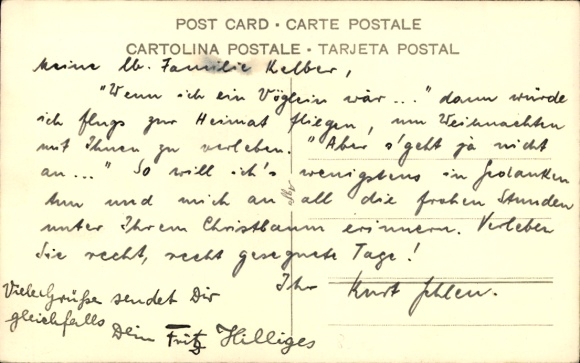 POST CARD · CARTE POSTALE
CARTOLINA POSTALE · TARJETA POSTAL
Meine lb. Familie Kelber,
"Wenn ich ein Vöglein wär ..." dann würde
ich flugs zur Heimat fliegen, um Weihnachten
mit Ihnen zu verleben. "Aber s'geht ja nicht
an ..." So will ich's wenigstens in Gedanken
tun und mich an all die frohen Stunden
unter Ihrem Christbaum erinnern. Verleben
Sie recht, recht gesegnete Tage!
Ihr Kurt
Viele Grüße sendet Dir
gleichfalls Dein Fritz Hilliges